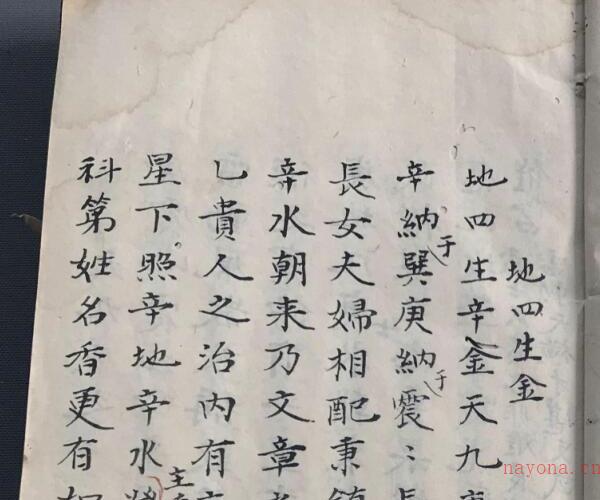 地四生金
地四生辛金天九
辛納于巽庚納于震〻
長女夫婦相配秉
辛水朝来乃文章
乙貴人之治内有
星下照辛地辛水
主
科第姓名香更有
nayona.cn